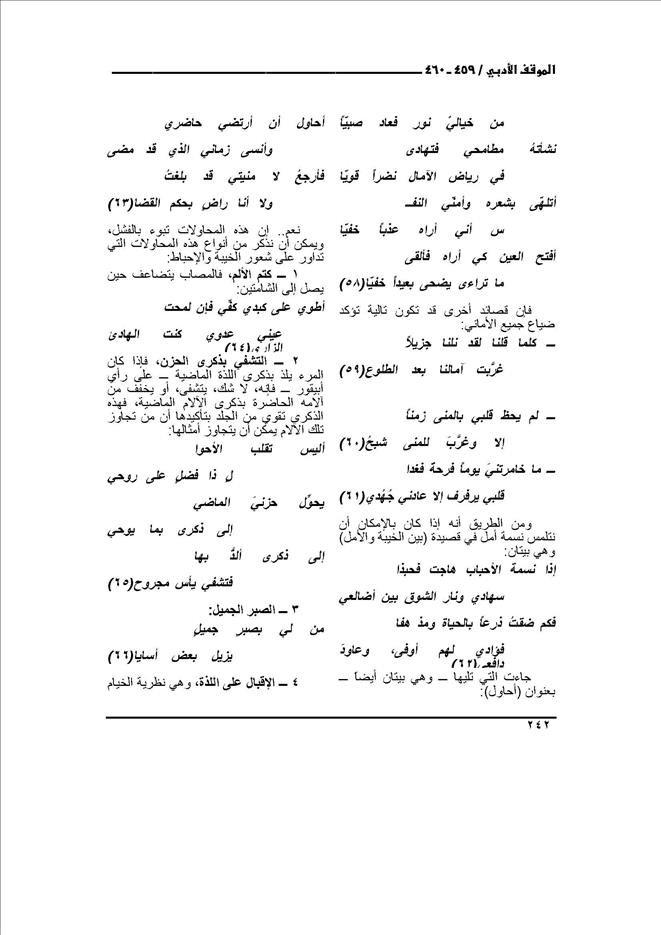 الموقف الأدبي / ٤٥٩ ـ ٤٦٠
من خياليْ نور فعاد صبيّاً
نشأتهُ مطامحي فتهادى
في رياض الآمال نضراً قويّا
أتلهّى بشعره وأمنّي النفـ
س أني أراه عذباً خفيّا
أفتح العين كي أراه فألقى
ما تراءى يضحى بعيداً خفيّا(٥٨)
فإن قصائد أخرى قد تكون تالية تؤكد
ضياع جميع الأماني:
ـ كلما قلنا لقد نلنا جزيلاً
غُرِّبت آمالنا بعد الطلوع(٥٩)
ـ لم يحظ قلبي بالمنى زمناً
إلا وغرَّبَ للمنى شبحُ(٦٠)
ـ ما خامرتنيَ يوماً فرحة فغدا
قلبي يرفرف إلا عادني جُهْدي(٦١)
ومن الطريق أنه إذا كان بالإمكان أن
نتلمس نسمة أمل في قصيدة (بين الخيبة والأمل)
وهي بيتان:
إذا نسمة الأحباب هاجت فحبذا
سهادي ونار الشوق بين أضالعي
فكم ضقتُ ذرعاً بالحياة ومذ هفا
فؤادي لهم أوفى، وعاودَ
دافعي(٦٢)
جاءت التي تليها ـ وهي بيتان أيضاً ـ
بعنوان (أحاول):
أحاول أن أرتضي حاضري
وأنسى زماني الذي قد مضى
فأرجعُ لا منيتي قد بلغتُ
ولا أنا راضٍ بحكم القضا(٦٣)
نعم.. إن هذه المحاولات تبوء بالفشل،
ويمكن أن نذكر من أنواع هذه المحاولات التي
تداور على شعور الخيبة والإحباط:
١ ـ كتم الألم، فالمصاب يتضاعف حين
يصل إلى الشامتين:
أطوي على كبدي كفّي فإن لمحت
عيني عدوي كنت الهادئ
الزاري(٦٤)
٢ ـ التشفي بذكرى الحزن، فإذا كان
المرء يلذ بذكرى اللذة الماضية ـ على رأي
أبيقور ـ فإنه، لا شك، يتشفى، أو يخفف من
آلامه الحاضرة بذكرى الآلام الماضية، فهذه
الذكرى تقوي من الجلد بتأكيدها أن من تجاوز
تلك الآلام يمكن أن يتجاوز أمثالها:
أليس تقلب الأحوا
لِ ذا فضلٍ على روحي
يحوِّل حزنيَ الماضي
إلى ذكرى بما يوحي
إلى ذكرى ألذّ بها
فتشفي يأس مجروح(٦٥)
٣ ـ الصبر الجميل:
من لي بصبر جميلٍ
يزيل بعض أسايا(٦٦)
٤ ـ الإقبال على اللذة، وهي نظرية الخيام
٢٤٢